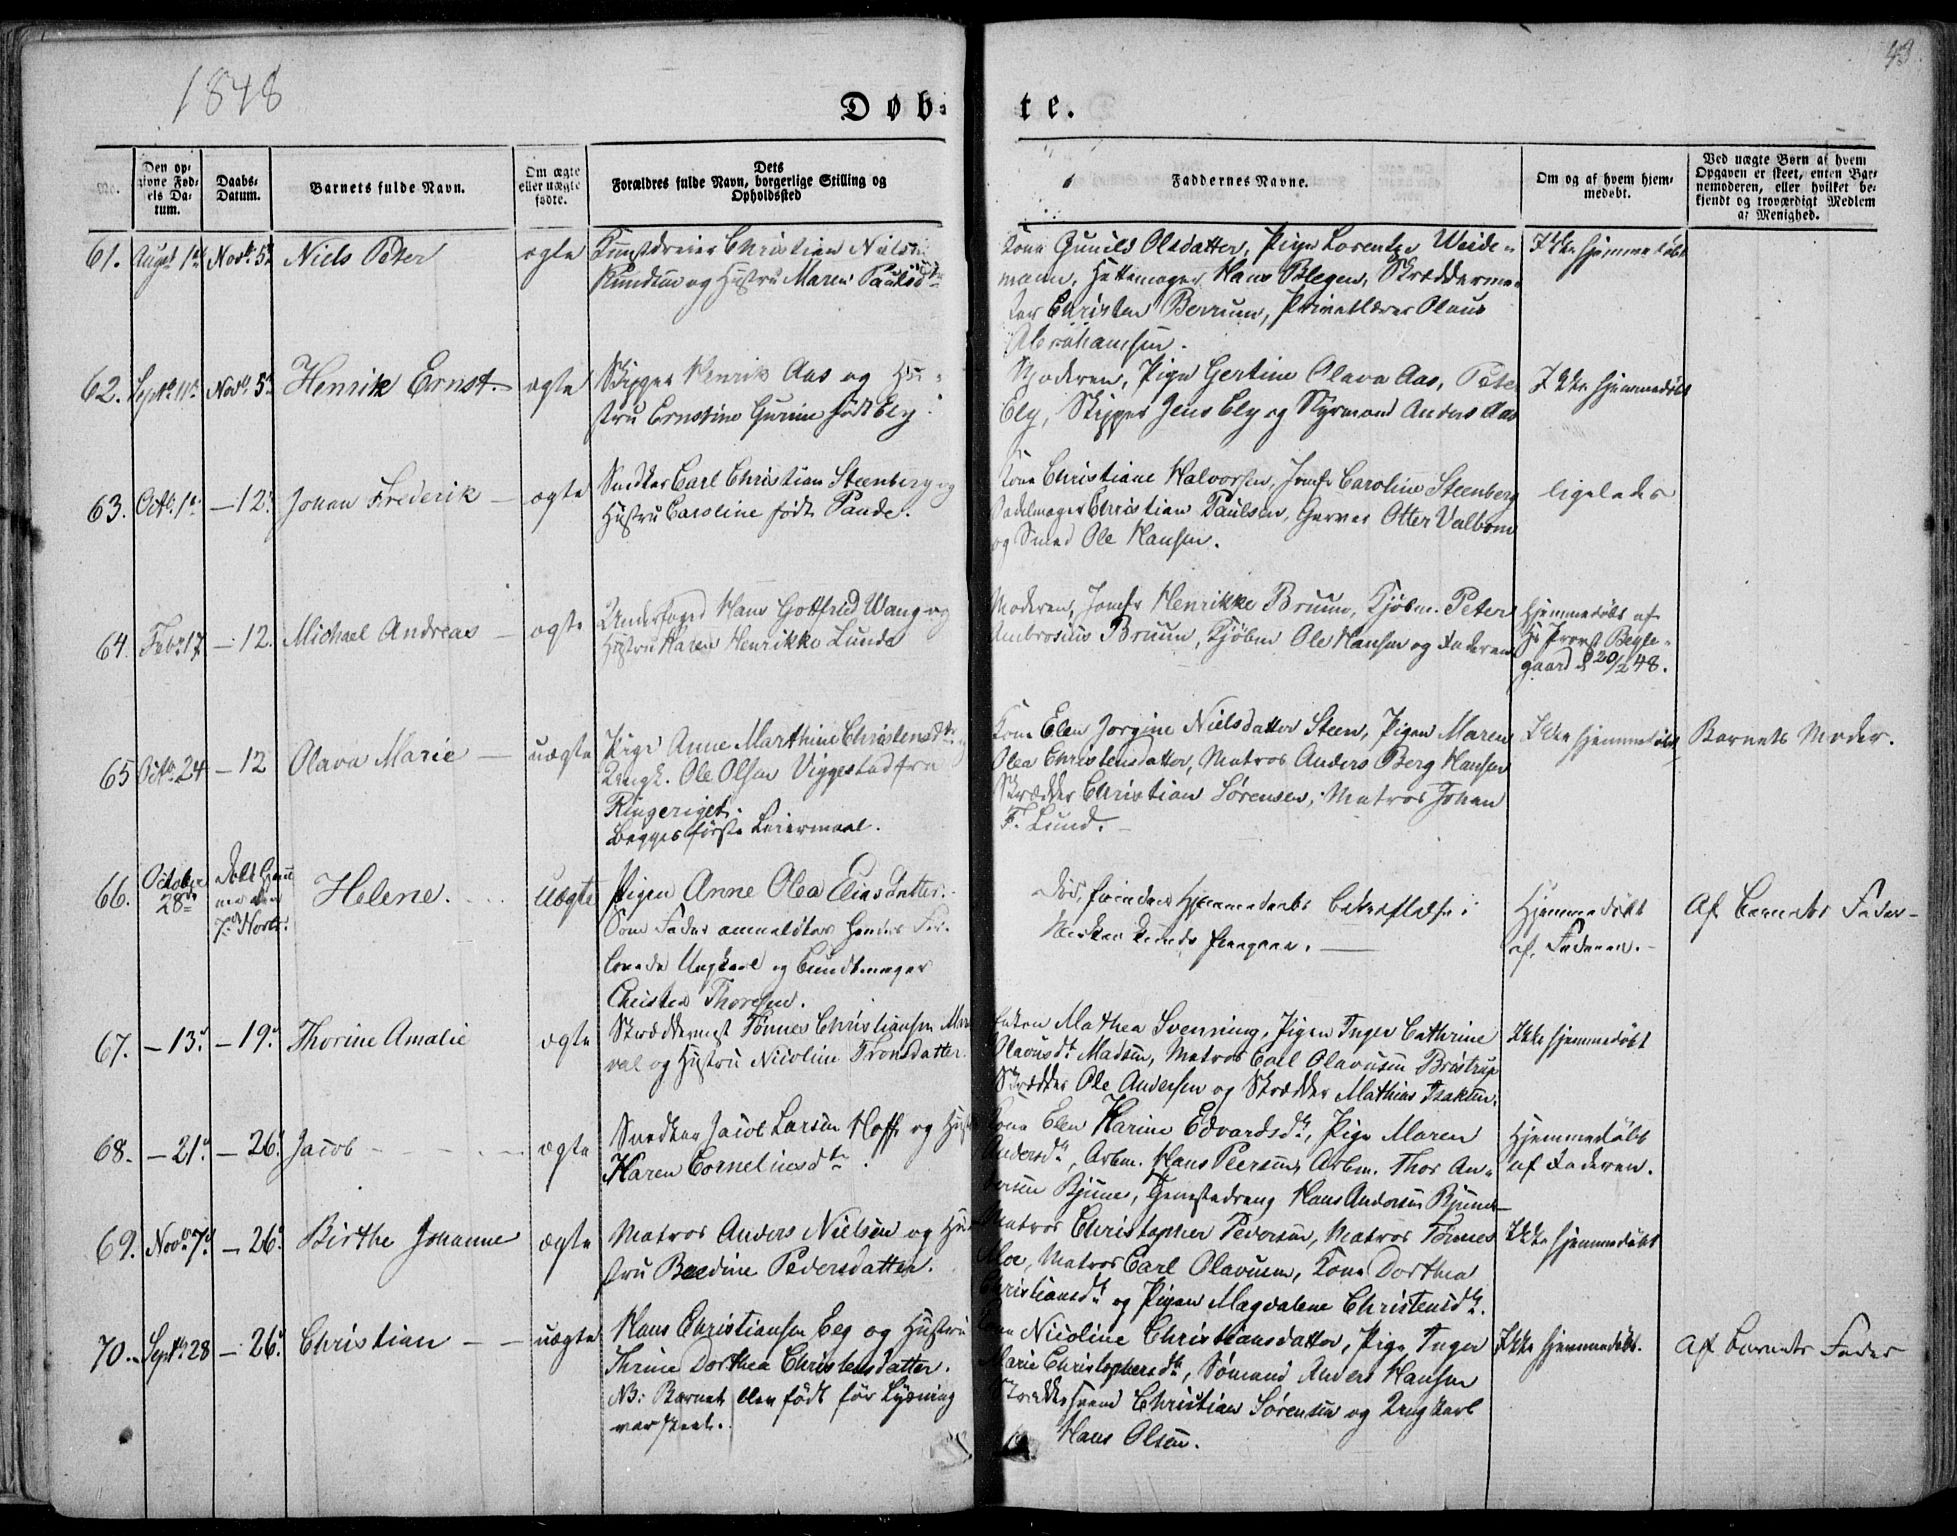 1848
43.
Døb-
te.
No.
Den op-
givne Fød-
els Da-
tum.
Daabs-
Datum.
Barnets fulde Navn.
Om ægte
eller uægte
fødte.
Dets
Forældres fulde Navn, borgerlige Stilling og
Opholdssted
Faddernes Navne.
Om og af hvem hjem-
medøbt.
Ved uægte Børn af hvem
Opgaven er skeet, enten Bar-
nemoderen, eller hvilket be-
kjendt og troværdigt Medlem
af Menighed.
61. August 1st Novbr 5te Niels Peter ægte Kunstdreier Christian Nielsen
Knudsen og Hustru Maren Paulsdtr
Kone Gunild Olsdatter, Pige Lorentze Weide-
mann, Hattemager Hans Blegen, Skrædderme-
ster Christen Berrum, Privatlærer Olaus
Abrahamsen.
Ikke hjemmedøbt
62. Septbr 11te Novbr 5te Henrik Ernst. ægte Skipper Henrik Aas og Hu-
stru Ernstine Gurine født Ely.
Moderen, Pige Gertine Olava Aas, Peter
Ely, Skipper Jens Ely og Styrmand Anders Aas
Ikke hjemmedøbt
63. Octbr 1ste — 12. Johan Frederik — ægte Snedker Carl Christian Steenberg og
Hustru Caroline født Pande.
Kone Christiane Halvorsen, Jomfr Caroline Steenberg
Sadelmager Christian Paulsen, Garver Otter Valbom
og Smed Ole Hansen.
ligeledes
64. Febr 17 — 12. Michael Andreas — ægte Underfoged Hans Gottfried Wang og
Hustru Karen Henrikke Lund
Moderen, Jomfr Henrikke Bruun, Kjøbm. Peter
Ambrosius Bruun, Kjøbm Ole Hansen og Faderen
Hjemmedøbt af
Hr Provst Bygle-
gaard d. 20/2 48.
65 Octbr 24 — 12 Olava Marie — uægte Pige Anne Marthine Christensdtr
Ungk. Ole Olsen Viggestad fra
Ringeriget.
Begges første Leiermaal.
Kone Elen Jorgine Nielsdatter Steen, Pigen Maren
Olea Christensdatter, Matros Anders Berg Hansen
Skrædder Christian Sørensen, Matros Johan
F. Lund.
Ikke hjemmedøbt
Barnets Moder.
66. October
28de
7de Novbr.
Helene. uægte Pigen Anne Olea Eliasdatter.
Som Fader anmeldtes hendes For-
lovede Ungkarl og Bundtmager
Christen Thoresen.
Døde, førend Hjemmedaabs bekræftelse i
Kirken kunde foregaae.
Hjemmedøbt
af Faderen.
Af Barnets Fader
67. — 13. — 19. Thorine Amalie ægte Skræddermst Tønnes Christiansen
val og Hustru Nicoline Tronsdatter.
Enken Mathea Svenning, Pigen Inger Cathrine
Olavusdtr Madsen, Matros Carl Olavusen Brøstrup
Skrædder Ole Andersen og Skrædder Mathias Isaksen.
Ikke hjemmedøbt
68. — 21. — 26. Jacob ægte Snedker Jacob Larsen Hoff og Hust
Karen Cornelius dtr.
Kone Elen Karine Edvardsdtr, Pige Maren
Andersdtr, Arbm. Hans Peersen, Arbm. Thor An-
dersen Bjune, Tjenestedreng Hans Andersen Bjune
Hjemmedøbt
af Faderen.
69. Novbr 7. — 26. Birthe Johanne ægte Matros Anders Nielsen og Hu
stru Beedine Pedersdatter.
Matros Christopher Pedersen, Matros Tønnes
Moe, Matros Carl Olavusen, Kone Dorthea
Christiansdtr og Pigen Magdalene Christensdtr.
Ikke hjemmedøbt
70. Septbr 28 — 26. Christian — — uægte Hans Christiansen Eeg og Hustru
Thrine Dorthea Christensdatter.
NB: Barnet blev født før Lysning
var skeet.
Kone Nicoline Christiansdatter, Pige Inger
Marie Christophersdtr, Sømand Anders Hansen
Skræddersvend Christian Sørensen og Ungkarl
Hans Olsen.
Ikke hjemmedøbt.
Af Barnets Fader